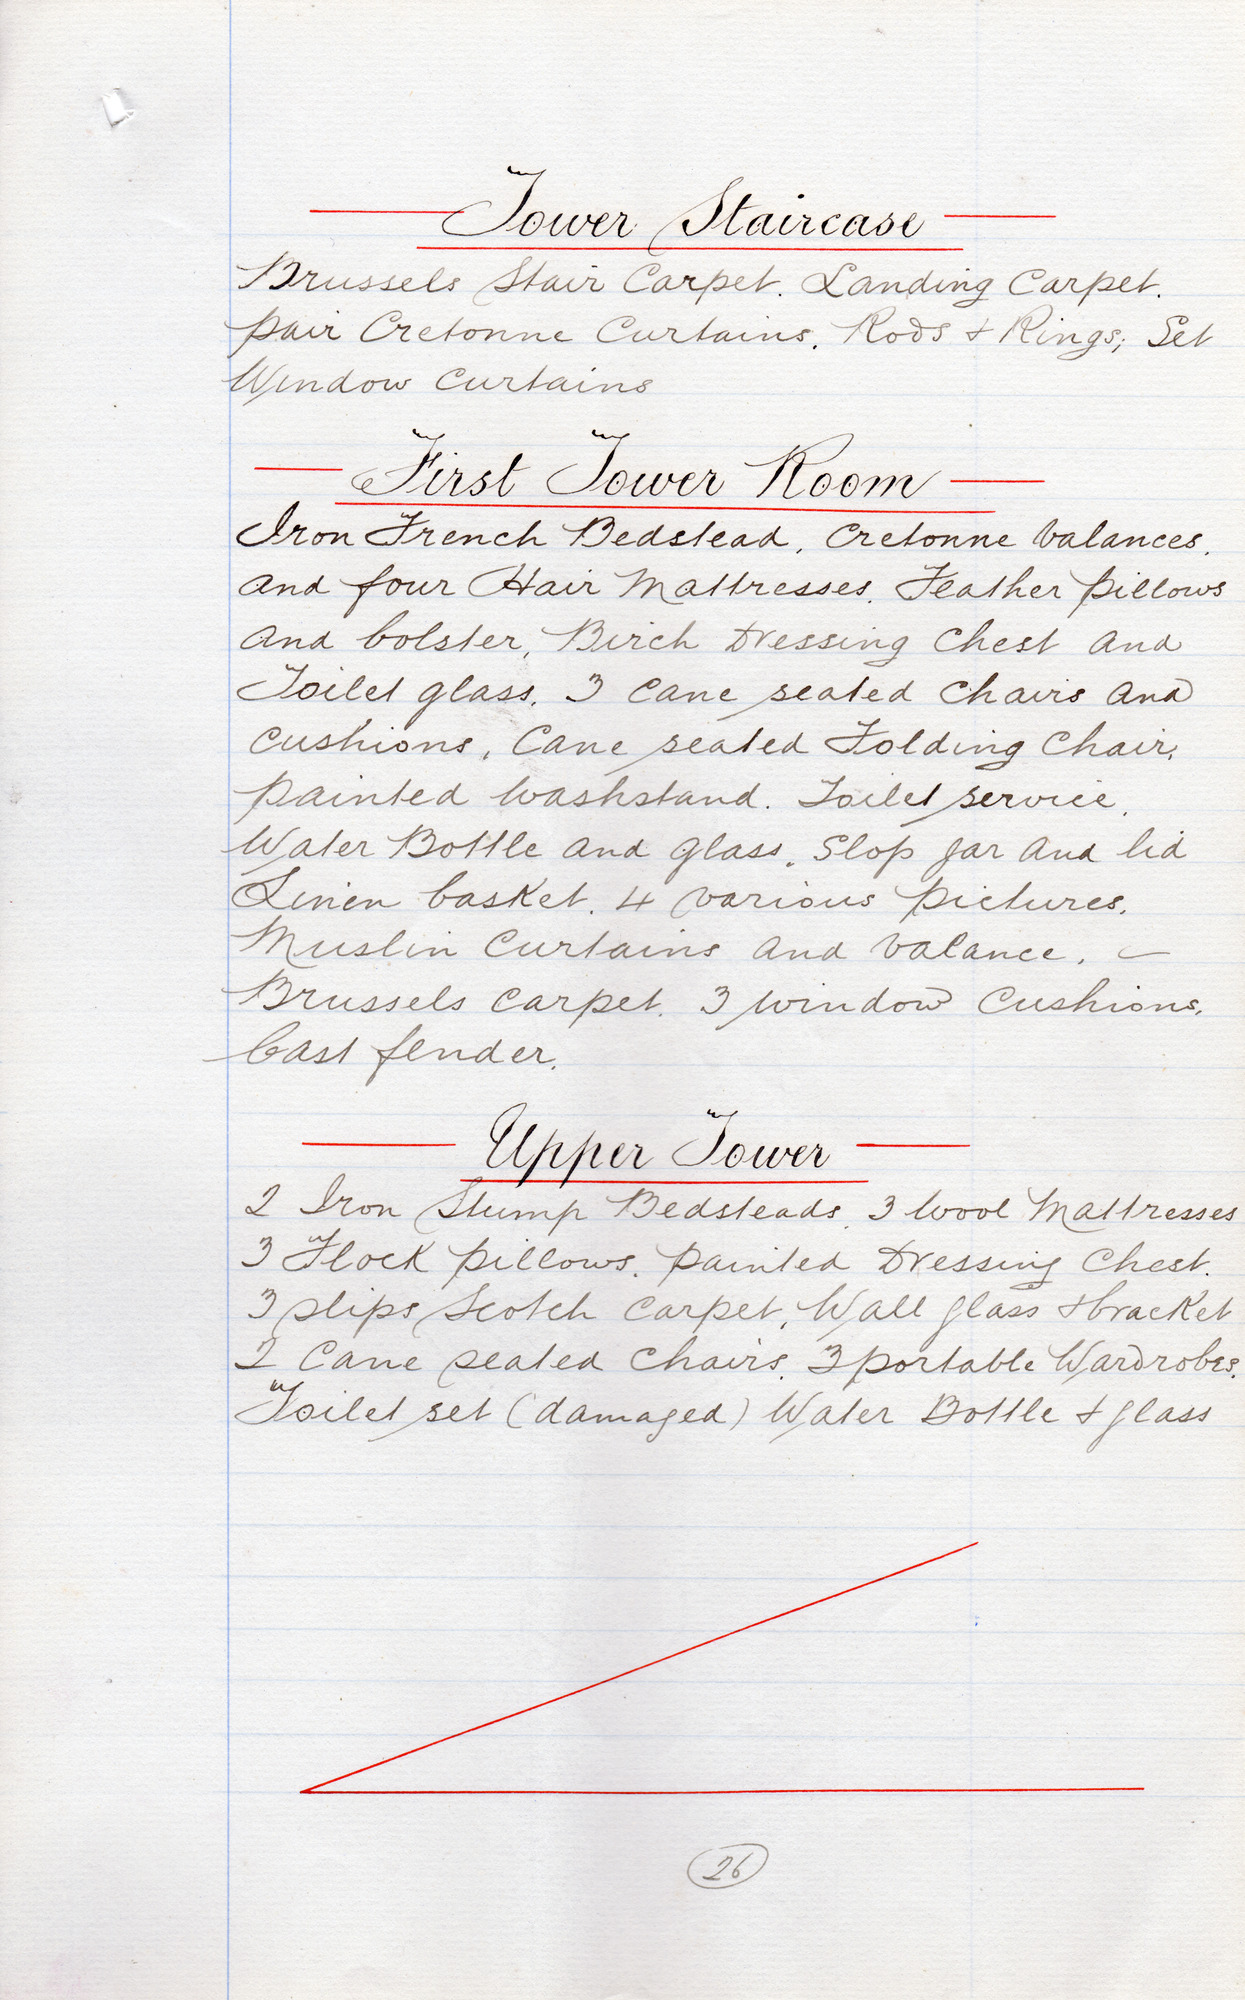 Tower Staircase
Brussels Stair Carpet. Landing Carpet.
pair Cretonne Curtains. Rods & Rings; Set
Window Curtains
First Tower Room
Iron French Bedstead, Cretonne valances.
and four Hair Mattresses. Feather pillows
and bolster, Birch Dressing Chest and
Toilet glass. 3 Cane seated Chairs and
cushions, Cane seated Folding Chair,
painted washstand. Toilet service.
Water Bottle and glass. Slop jar and lid
Linen basket. 4 various pictures.
Muslin Curtains and valance. —
Brussels carpet. 3 window Cushions.
Cast fender.
Upper Tower
2 Iron Stump Bedsteads. 3 wool Mattresses
3 Flock pillows. painted Dressing Chest.
3 slips Scotch Carpet, Wall glass & bracket
2 Cane seated Chairs. 3 portable Wardrobes.
Toilet set (damaged) Water Bottle & glass
26